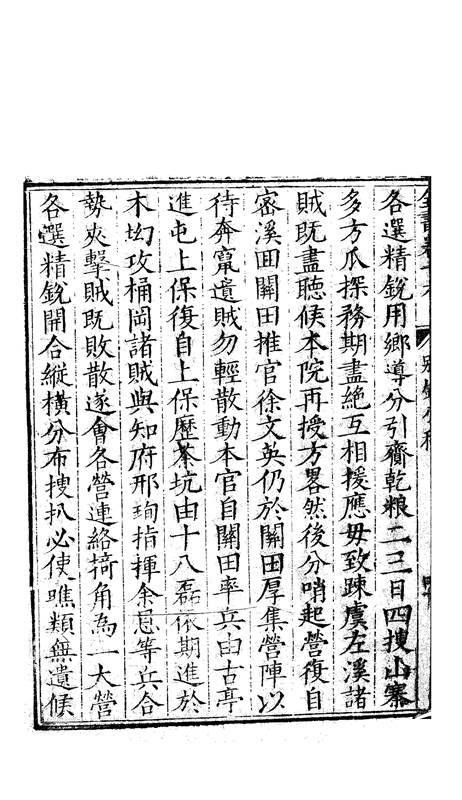 各選精銳用鄉導分引齎乾粮二三日四搜山寨
多方爪探務期盡絶互相援應毋致踈虞左溪諸
賊既盡聽候本院再授方畧然後分哨起營復自
宻溪田關田推官徐文英仍於關田厚集營陣以
待奔竄遺賊勿輕散動本官自關田率兵由古亭
進屯上保復自上保歷茶坑由十八磊依期進於
木坳攻桶岡諸賊與知府邢珣指揮余恩等兵合
勢夾擊賊既敗散遂會各營連絡掎角為一大營
各選精銳開合縱横分布搜扒必使噍類無遺候